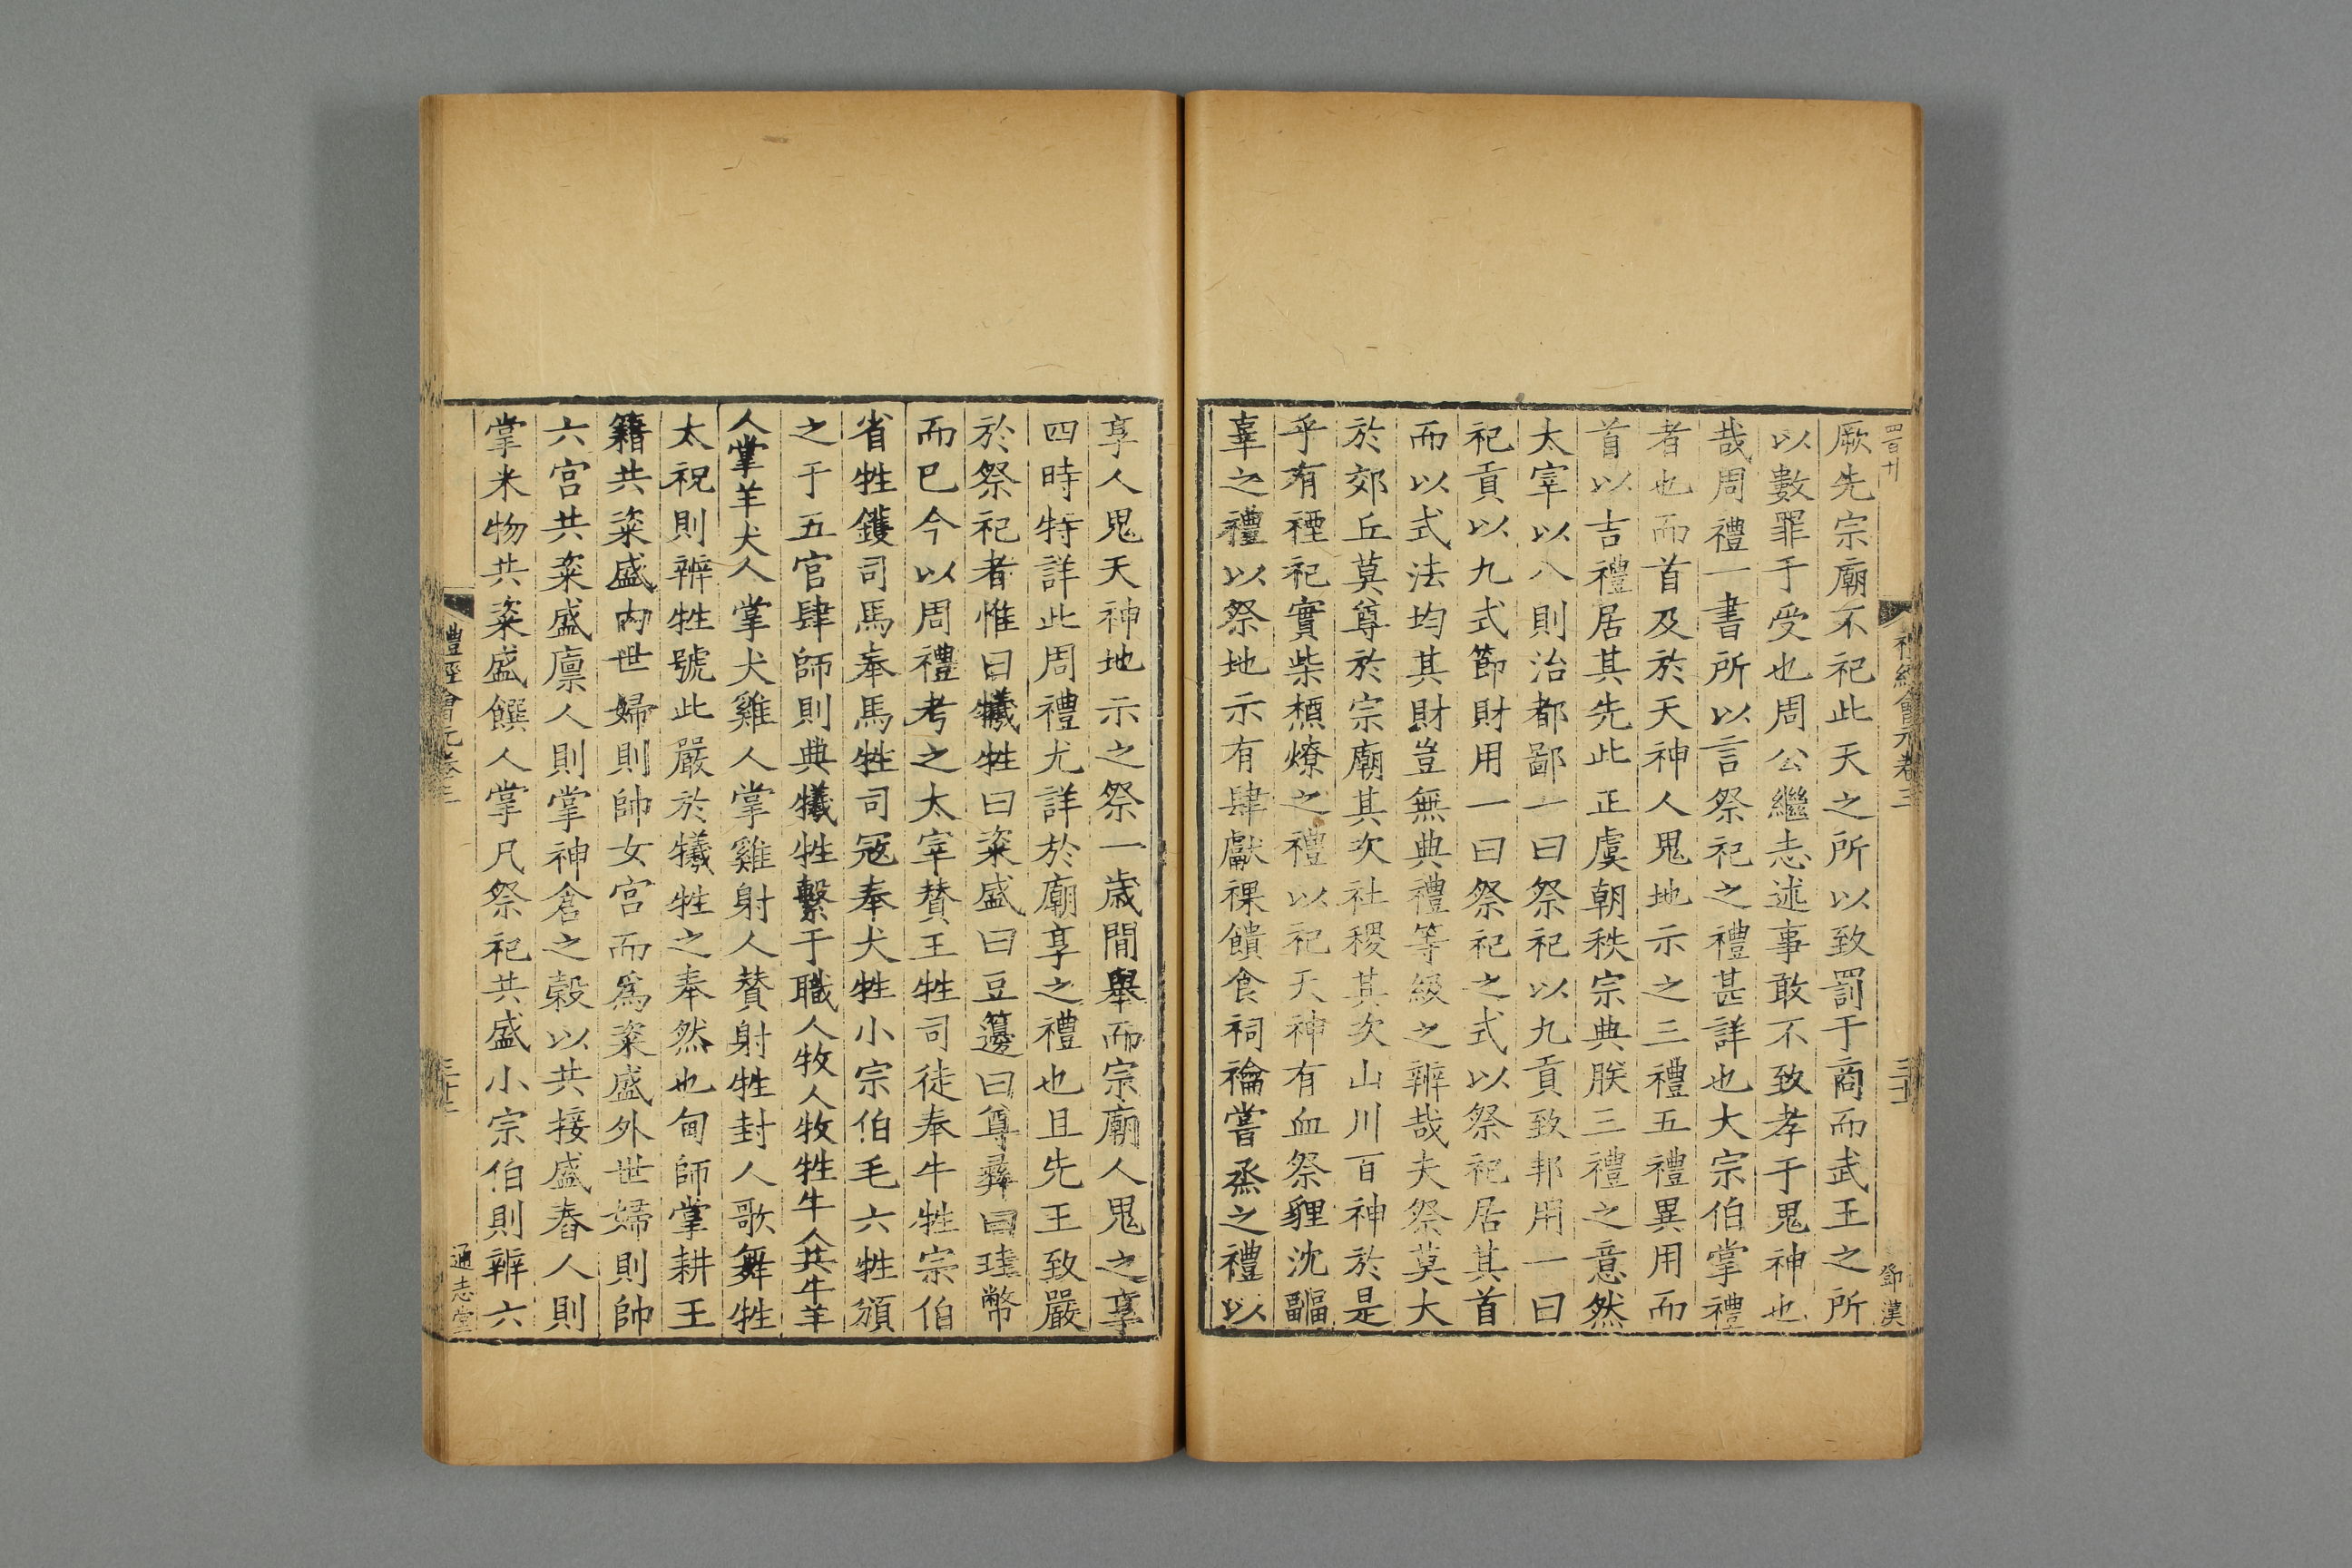 四百十
禮經會元卷三
三十
鄧漢
厥先宗廟不祀此天之所以致罰于商而武王之所
以數罪于受也周公繼志述事敢不致孝于鬼神也
哉周禮一書所以言祭祀之禮甚詳也大宗伯掌禮
者也而首及於天神人鬼地示之三禮五禮異用而
首以吉禮居其先此正虞朝秩宗典朕三禮之意然
太宰以八則治都鄙一曰祭祀以九貢致邦用一曰
祀貢以九式節財用一曰祭祀之式以祭祀居其首
而以式法均其財豈無典禮等級之辨哉夫祭莫大
於郊丘莫尊於宗廟其次社稷其次山川百神於是
乎有禋祀實柴槱燎之禮以祀天神有血祭貍沈疈
辜之禮以祭地示有肆獻祼饋食祠禴嘗烝之禮以
享人鬼天神地示之祭一歲間舉而宗廟人鬼之享
四時特詳此周禮尤詳於廟享之禮也且先王致嚴
於祭祀者惟曰犧牲曰粢盛曰豆籩曰尊彝曰珪幣
而巳今以周禮考之太宰賛王牲司徒奉牛牲宗伯
省牲鑊司馬奉馬牲司冦奉犬牲小宗伯毛六牲頒
之于五官肆師則典犧牲繫于職人牧人牧牲牛人共牛羊
人掌羊犬人掌犬雞人掌雞射人賛射牲封人歌舞牲
太祝則辨牲號此嚴於犧牲之奉然也甸師掌耕王
籍共粢盛内世婦則帥女宮而爲粢盛外世婦則帥
六宮共粢盛廩人則掌神倉之糓以共接盛舂人則
掌米物共粢盛饌人掌凡祭祀共盛小宗伯則辨六
禮經會元卷三
通志堂